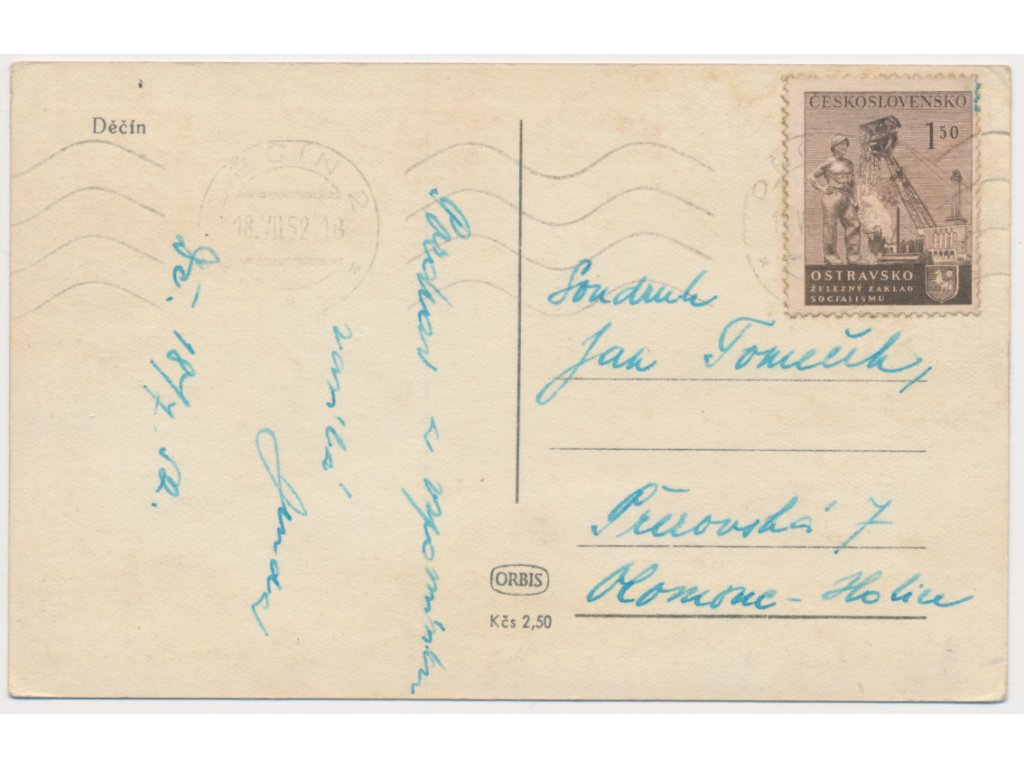 Děčín
DĚČÍN 2
18.VII.52 18
ČESKOSLOVENSKO
1 50
OSTRAVSKO
ŽELEZNÝ ZÁKLAD
SOCIALISMU
Pozdrav a vzpomínku
zasílá
Dč. 18/7. 52.
Soudruh
Jan Tomečík,
Přerovská 7
Olomouc - Holice
ORBIS
Kčs 2,50